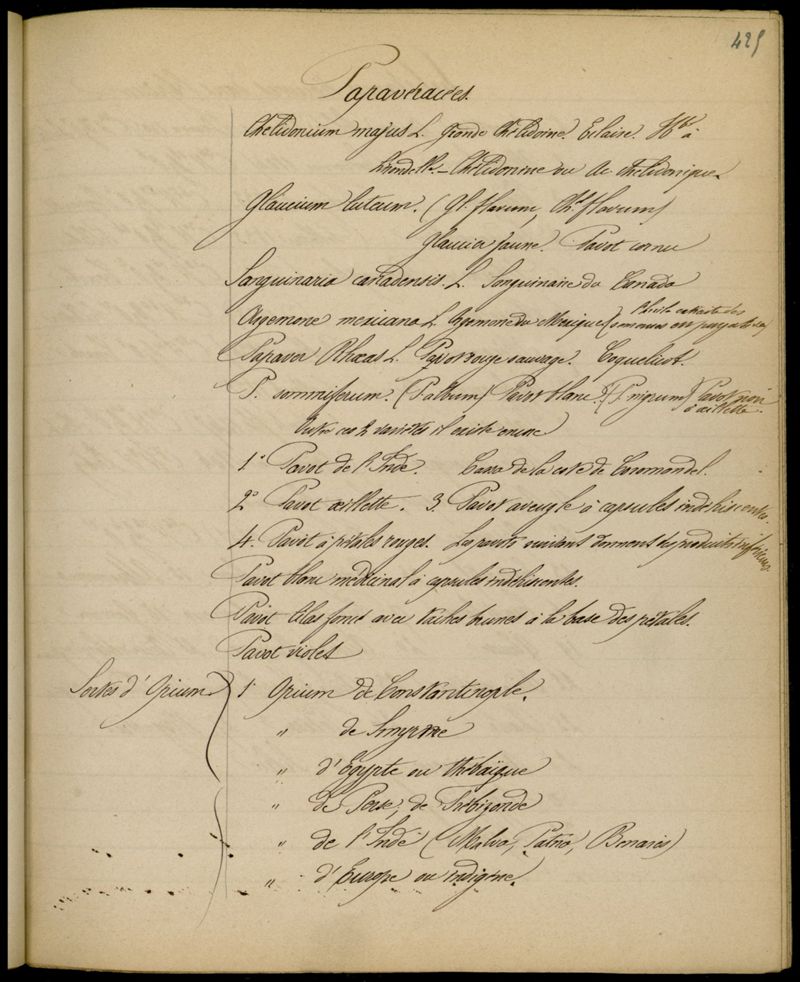 425
Papavéracées.
Chelidonium majus L. Grande Chélidoine. Eclaire. Hbe à
L'hirondelle. _ Chélidonine ou Ac. chélidonique.
Glaucium luteum. (Gl. flavum, Chd flavum)
Glaucier jaune. Pavot cornu
Sanguinaria canadensis. L. Sanguinaire du Canada
Argemone mexicana L. Argemone du Mexique (
extraite des
semences purgative)
Papaver Rhœas L. Pavot rouge sauvage. Coquelicot.
P. somniferum. (P. album) Pavot blanc. (P. nigrum) Pavot noir
d'œillette.
Outre ces 2 variétés il existe encore
1° Pavot de l'Inde. de la cote de Coromandel.
2° Pavot œillette. 3. Pavot aveugle à capsules indéhiscentes.
4. Pavot à pétales rouges. Les pavots suivant donnent des produits inférieurs.
Pavot blanc médicinal à capsules indéhiscentes.
Pavot lilas foncé avec taches brunes à la base des pétales.
Pavot violet
Sortes d'Opium } 1° Opium de Constantinople.
" de Smyrne
" d'Egypte ou thébaïque
" de Perse, de Trébizonde
" de l'Inde (Malva, Patna, Benarès)
" d'Europe ou indigène.